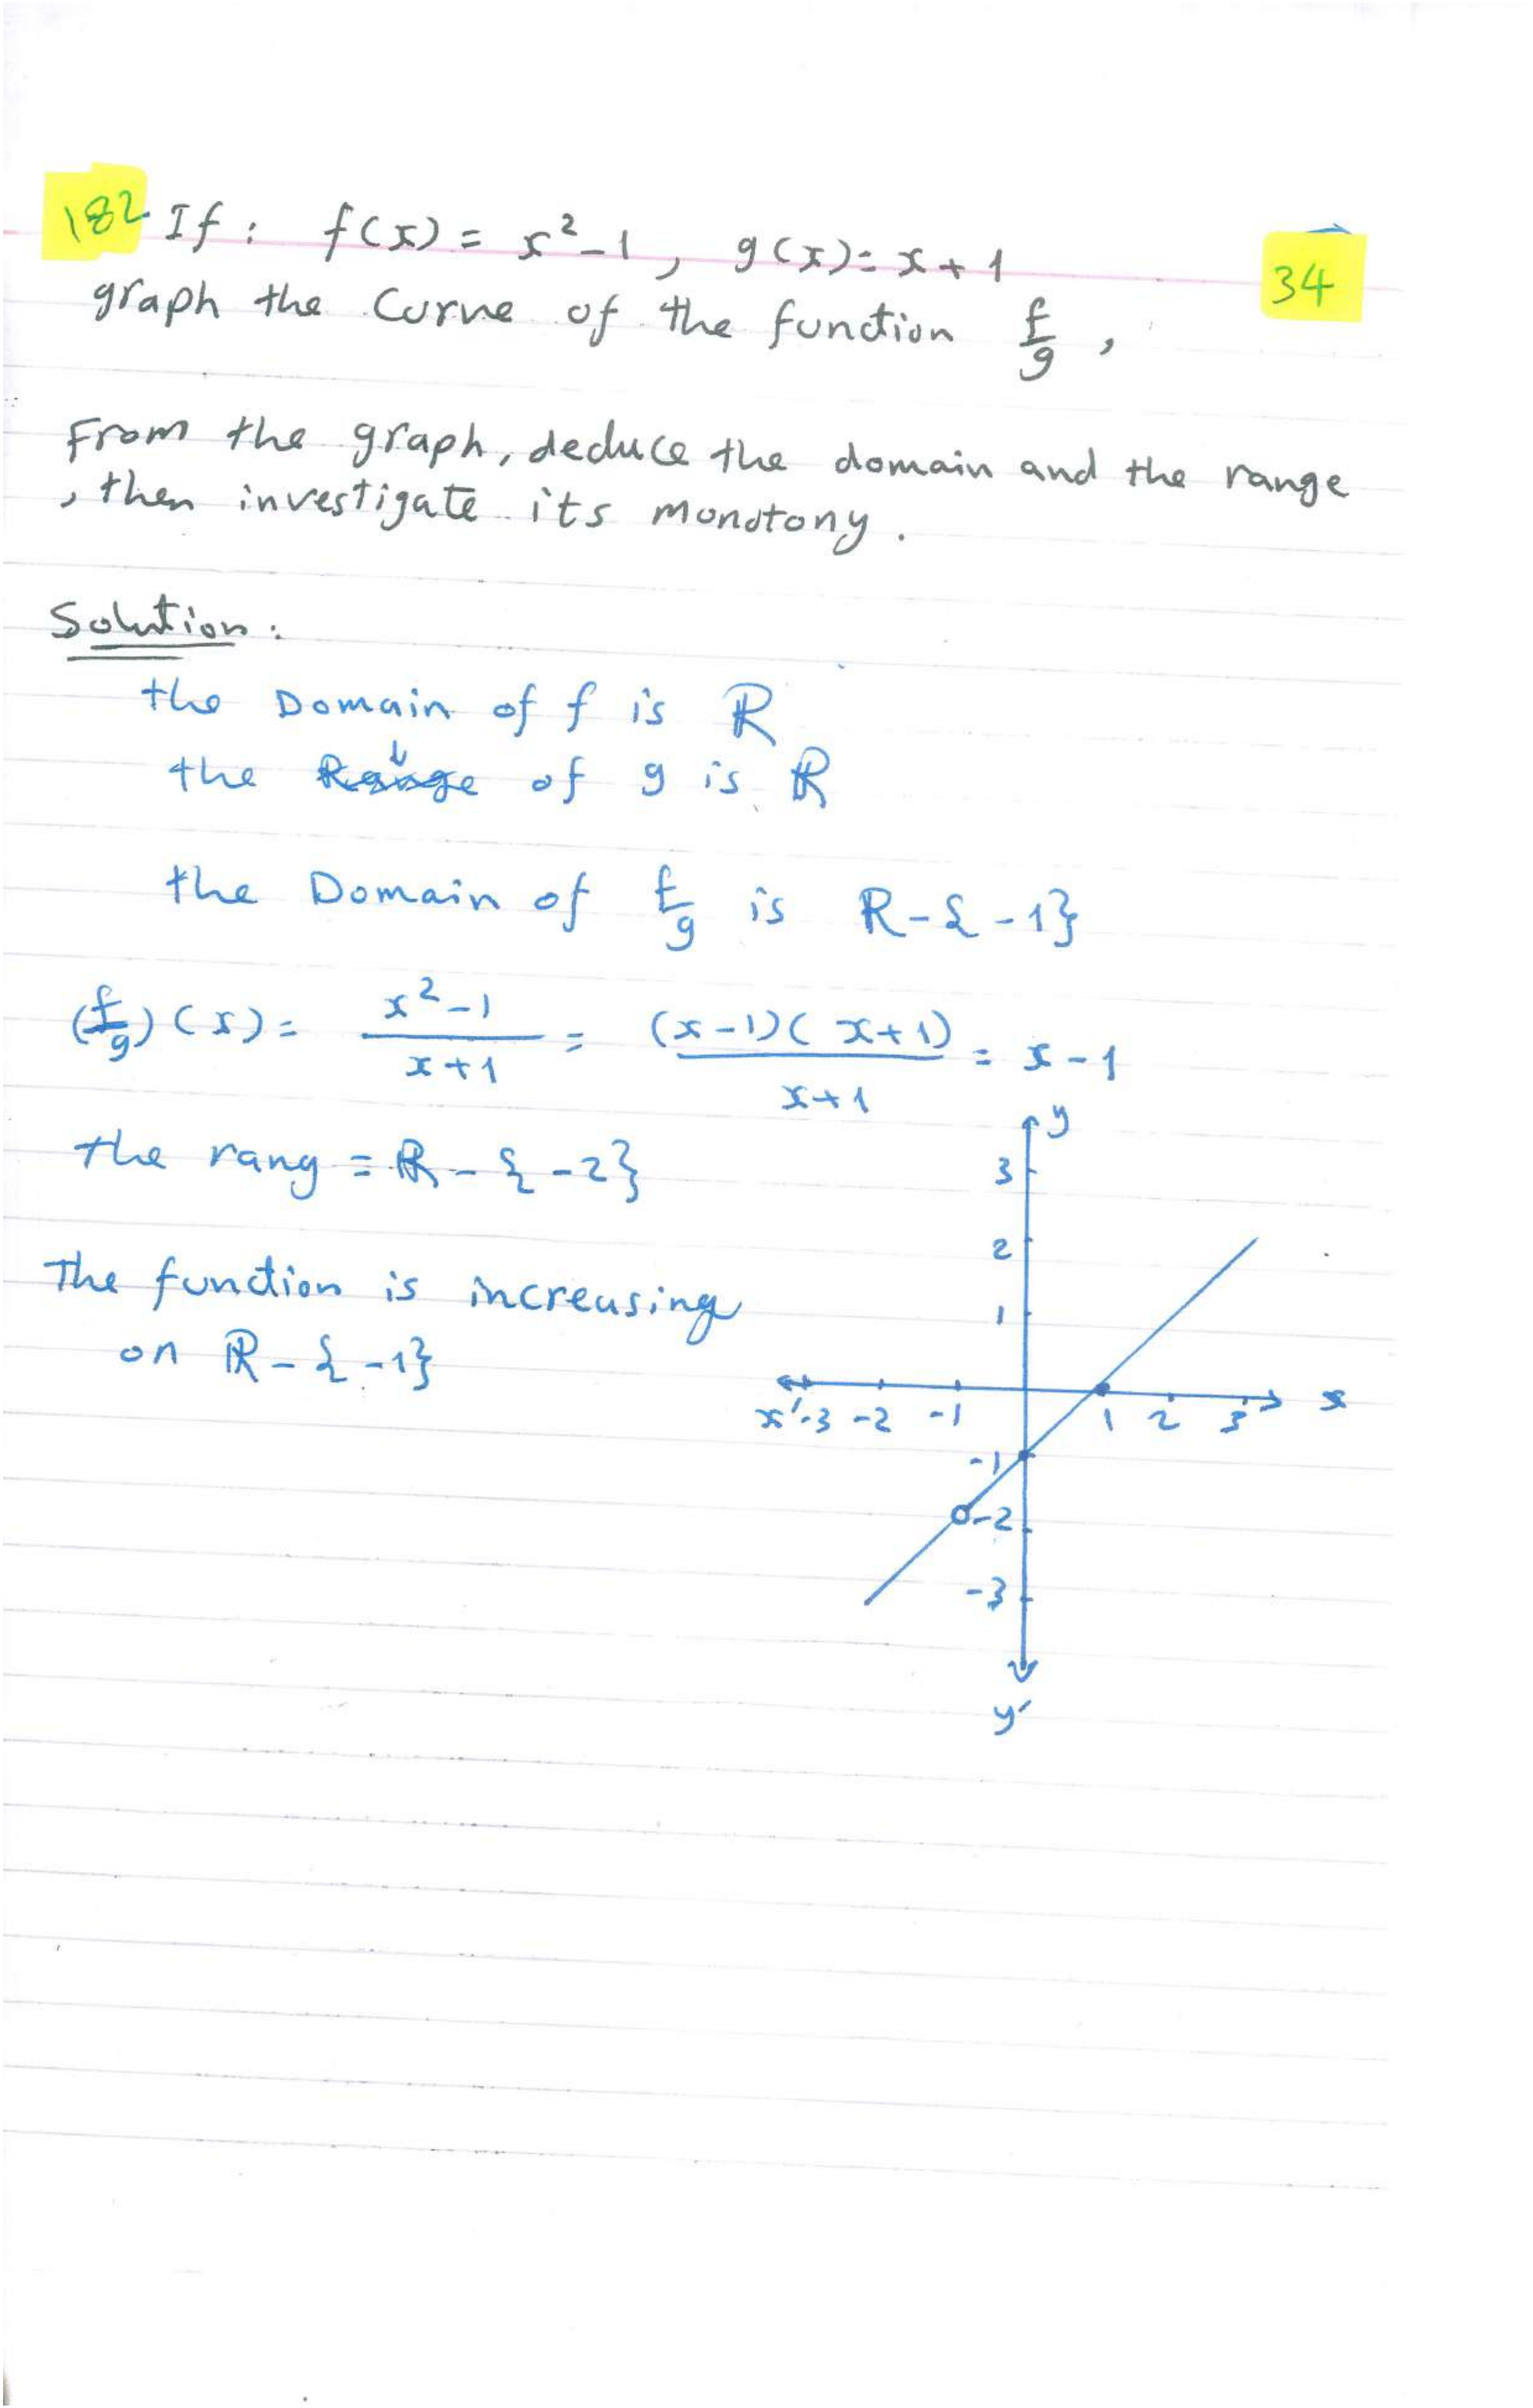 182 If : f(x) = x² - 1 , g(x) = x + 1
34
graph the Curve of the function f/g ,
From the graph, deduce the domain and the range
, then investigate its monotony .
Solution :
the Domain of f is ℝ
the Range of g is ℝ
the Domain of f/g is R - { -1}
(f/g) (x) = x² - 1 / x + 1 = (x - 1)( x + 1) / x + 1 = x - 1
the rang = ℝ - { -2}
The function is increasing
on ℝ - { -1}
y
3
2
1
x' -3 -2 -1 1 2 3 x
-1
-2
-3
y'